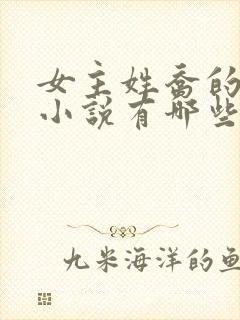 女主姓乔的
小说有哪些
九米海洋的鱼